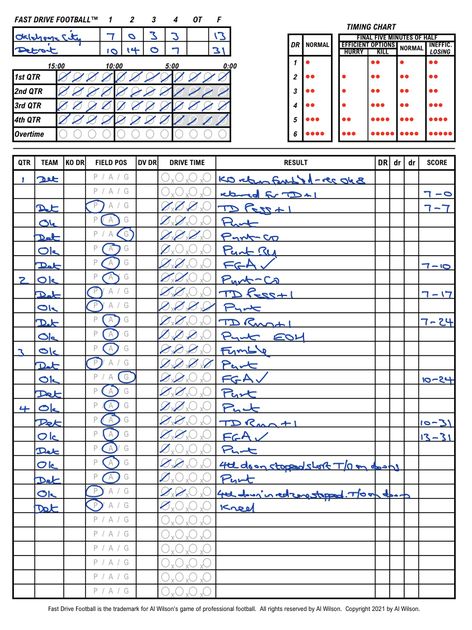 FAST DRIVE FOOTBALL™ 1 2 3 4 OT F
Oklahoma City 7 0 3 3 13
Detroit 10 14 0 7 31
15:00 10:00 5:00 0:00
1st QTR
2nd QTR
3rd QTR
4th QTR
Overtime
TIMING CHART
FINAL FIVE MINUTES OF HALF
DR NORMAL EFFICIENT OPTIONS NORMAL INEFFIC.
HURRY KILL LOSING
1
2
3
4
5
6
QTR TEAM KO DR FIELD POS DV DR DRIVE TIME RESULT DR dr dr SCORE
1 Det P / A / G KO return fumbl'd - rec Ok 8
P / A / G returned for TD+1 7-0
Det P / A / G TD Pass+1 7-7
Ok P / A / G Punt
Det P / A / G Punt-CO
Ok P / A / G Punt
Det P / A / G FGA ✓ 7-10
2 Ok P / A / G Punt-CO
Det P / A / G TD Pass+1 7-17
Ok P / A / G Punt
Det P / A / G TD Run+1 7-24
Ok P / A / G Punt EOH
3 Ok P / A / G Fumble
Det P / A / G Punt
Ok P / A / G FGA ✓ 10-24
Det P / A / G Punt
4 Ok P / A / G Punt
Det P / A / G TD Run+1 10-31
Ok P / A / G FGA ✓ 13-31
Det P / A / G Punt
Ok P / A / G 4th down stopped short T/O on downs
Det P / A / G Punt
Ok P / A / G 4th down in red zone stopped. T/O on downs
Det P / A / G Kneel
P / A / G
P / A / G
P / A / G
P / A / G
P / A / G
P / A / G
Fast Drive Football is the trademark for Al Wilson's game of professional football. All rights reserved by Al Wilson. Copyright 2021 by Al Wilson.